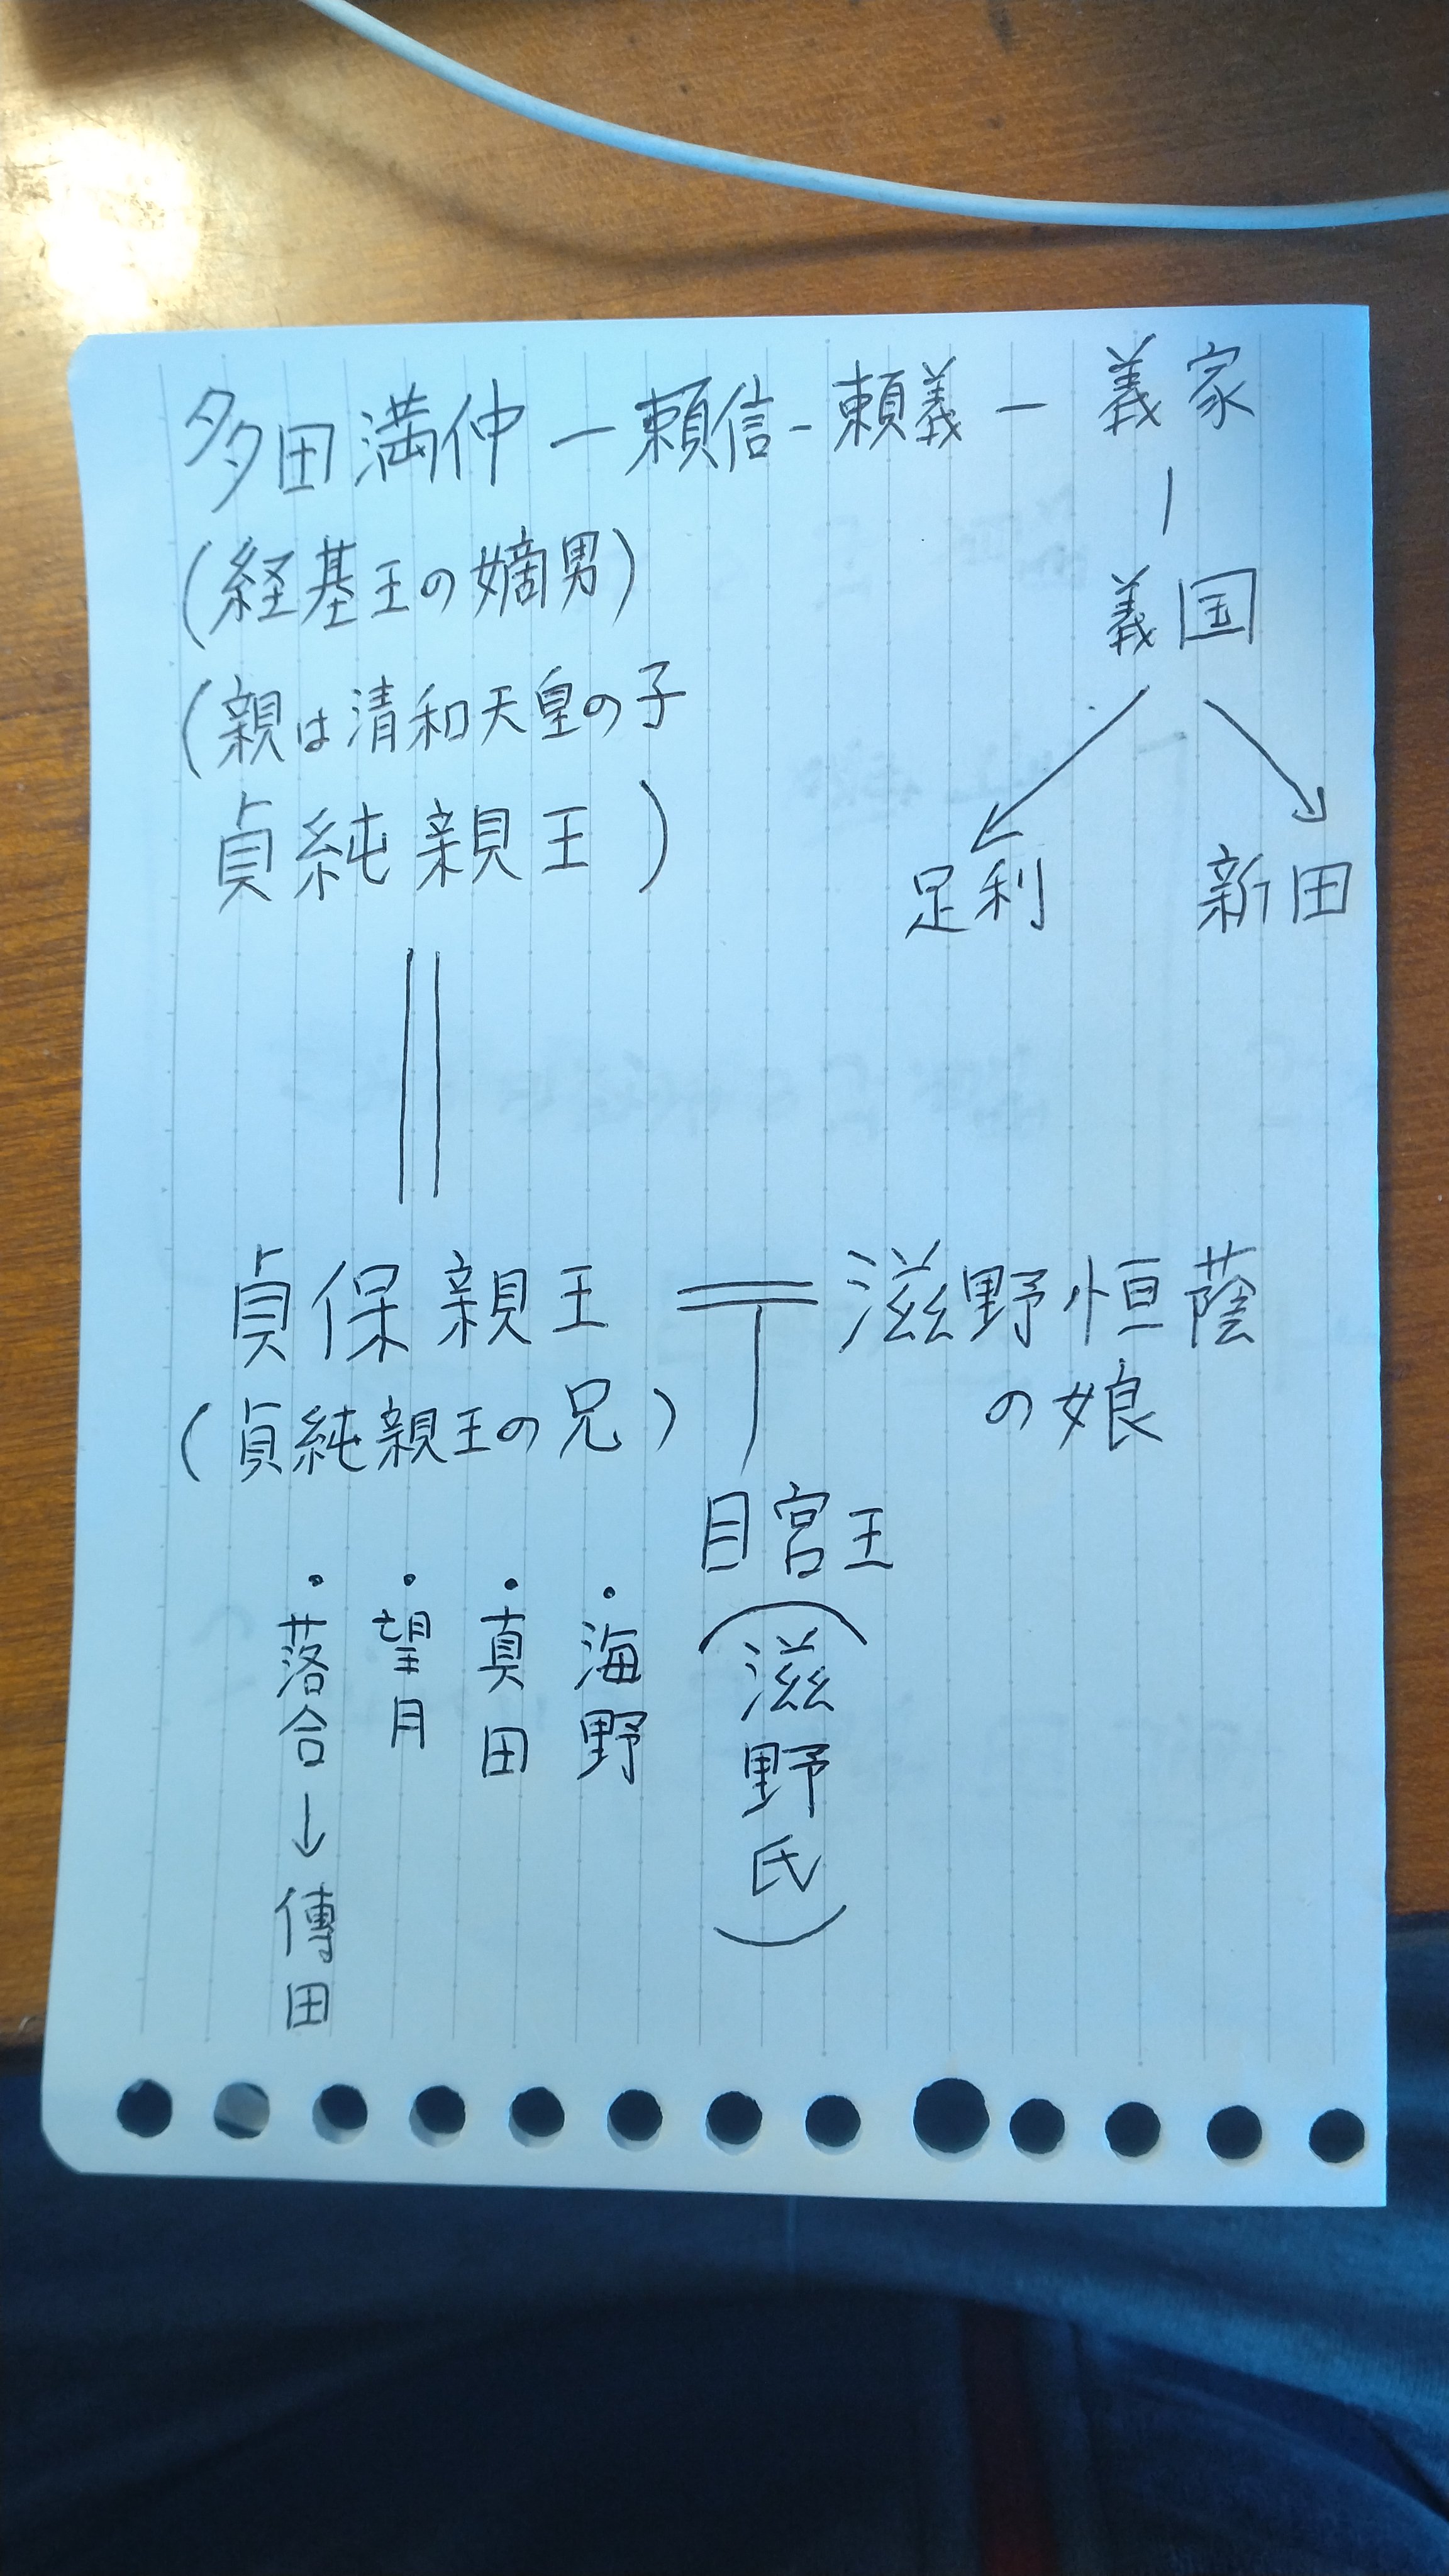 多田満仲ー頼信-頼義ー義家
(経基王の嫡男)
(親は清和天皇の子
貞純親王)
義国
足利
新田
貞保親王
(貞純親王の兄)
滋野恒蔭
の娘
目宮王
(滋野氏)
・海野
・真田
・望月
・落合→傳田